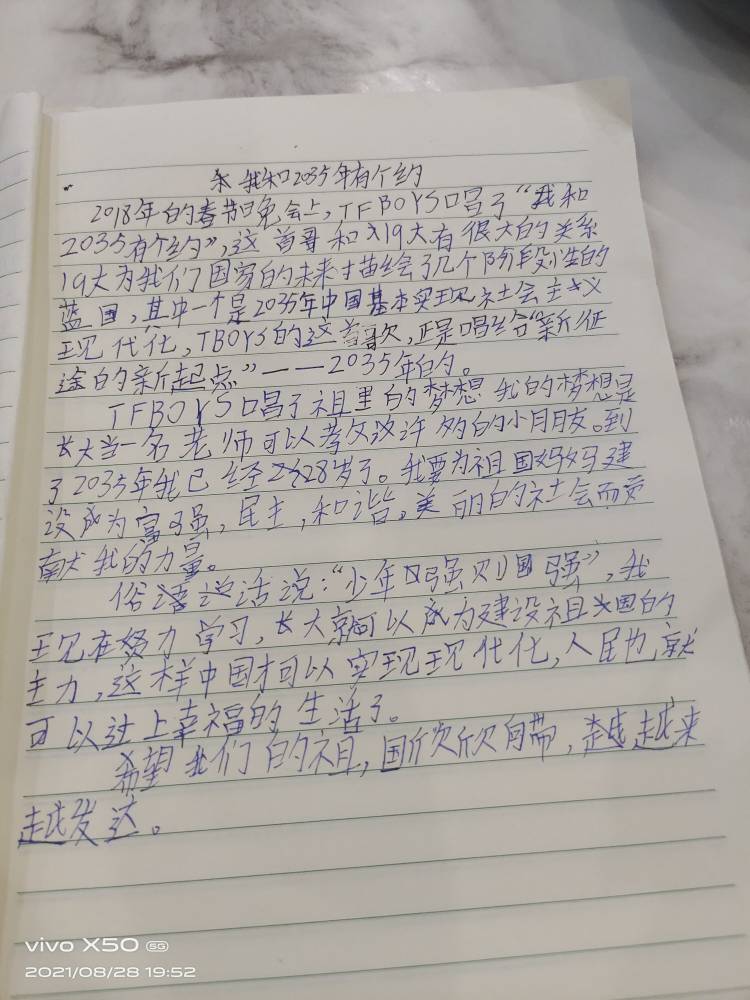 我和2035年有个约
2018年的春节晚会上,TFBOYS唱了“我和
2035有个约”,这首哥和19大有很大的关系
19大为我们国家的未来描绘了几个阶段性的
蓝国,其中一个是2035年中国基本实现社会主义
现代化,TBOYS的这首歌,正是唱给“新征
途的新起点”——2035年的。
TFBOYS唱了祖里的梦想 我的梦想是
长大当一名老师可以孝文这许多的小月朋友。到
了2035年我已经28岁了。我要为祖国妈妈建
设成为富强,民主,和谐,美丽的社会而贡
献我的力量。
俗话说:“少年强则国强”,我
现在努力学习,长大就可以成为建设祖国的
主力,这样中国才可以实现现代化,人民也就
可以过上幸福的生活了。
希望我们的祖,国欣欣向带,越越来
越发达。
vivo X50 5G
2021/08/28 19:52